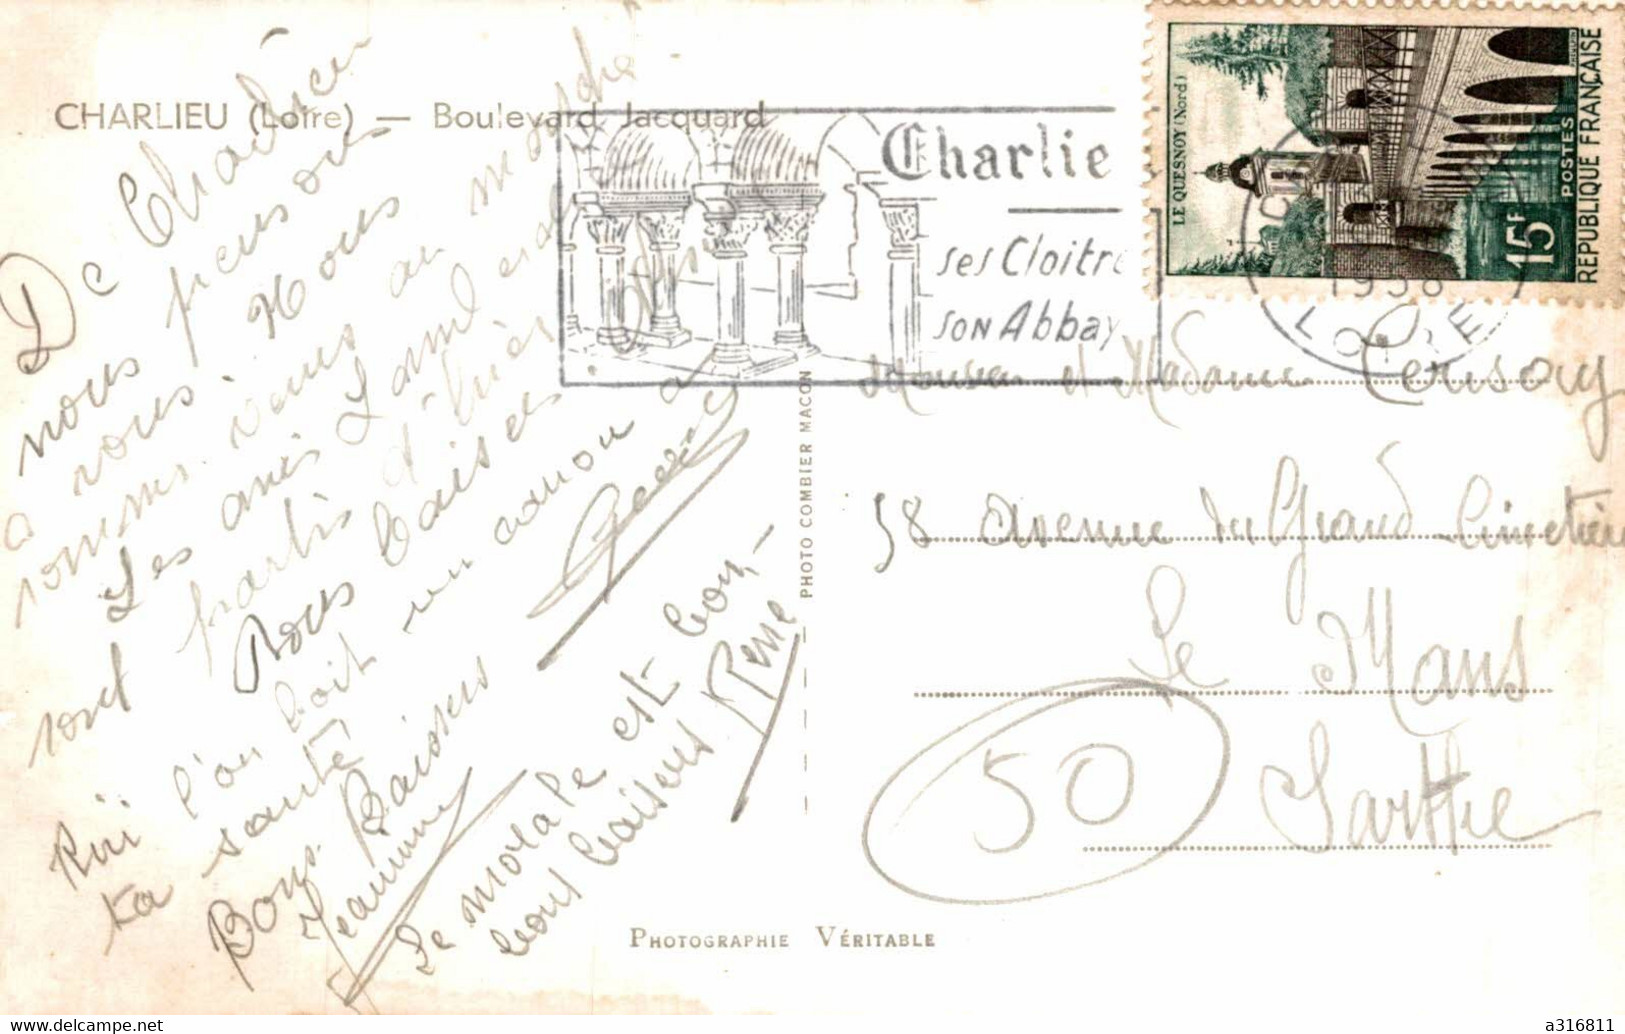 CHARLIEU (Loire) — Boulevard Jacquard
De Charlieu
nous pensons
à vous. Nous
sommes venus au marché
Les amis
sont partis d'hier
Bons baisers
l'on boit un canon à
ta santé
Bons Baisers
Jeannine
Le morale est bon —
bons baisers René
PHOTO COMBIER MACON
PHOTOGRAPHIE VÉRITABLE
Charlie
ses Cloitre
son Abbay
LE QUESNOY (Nord)
15F
POSTES
REPUBLIQUE FRANÇAISE
1958
LOIRE
Monsieur et Madame
58 avenue du Grand Cimetière
Le Mans
Sarthe
50
a316811